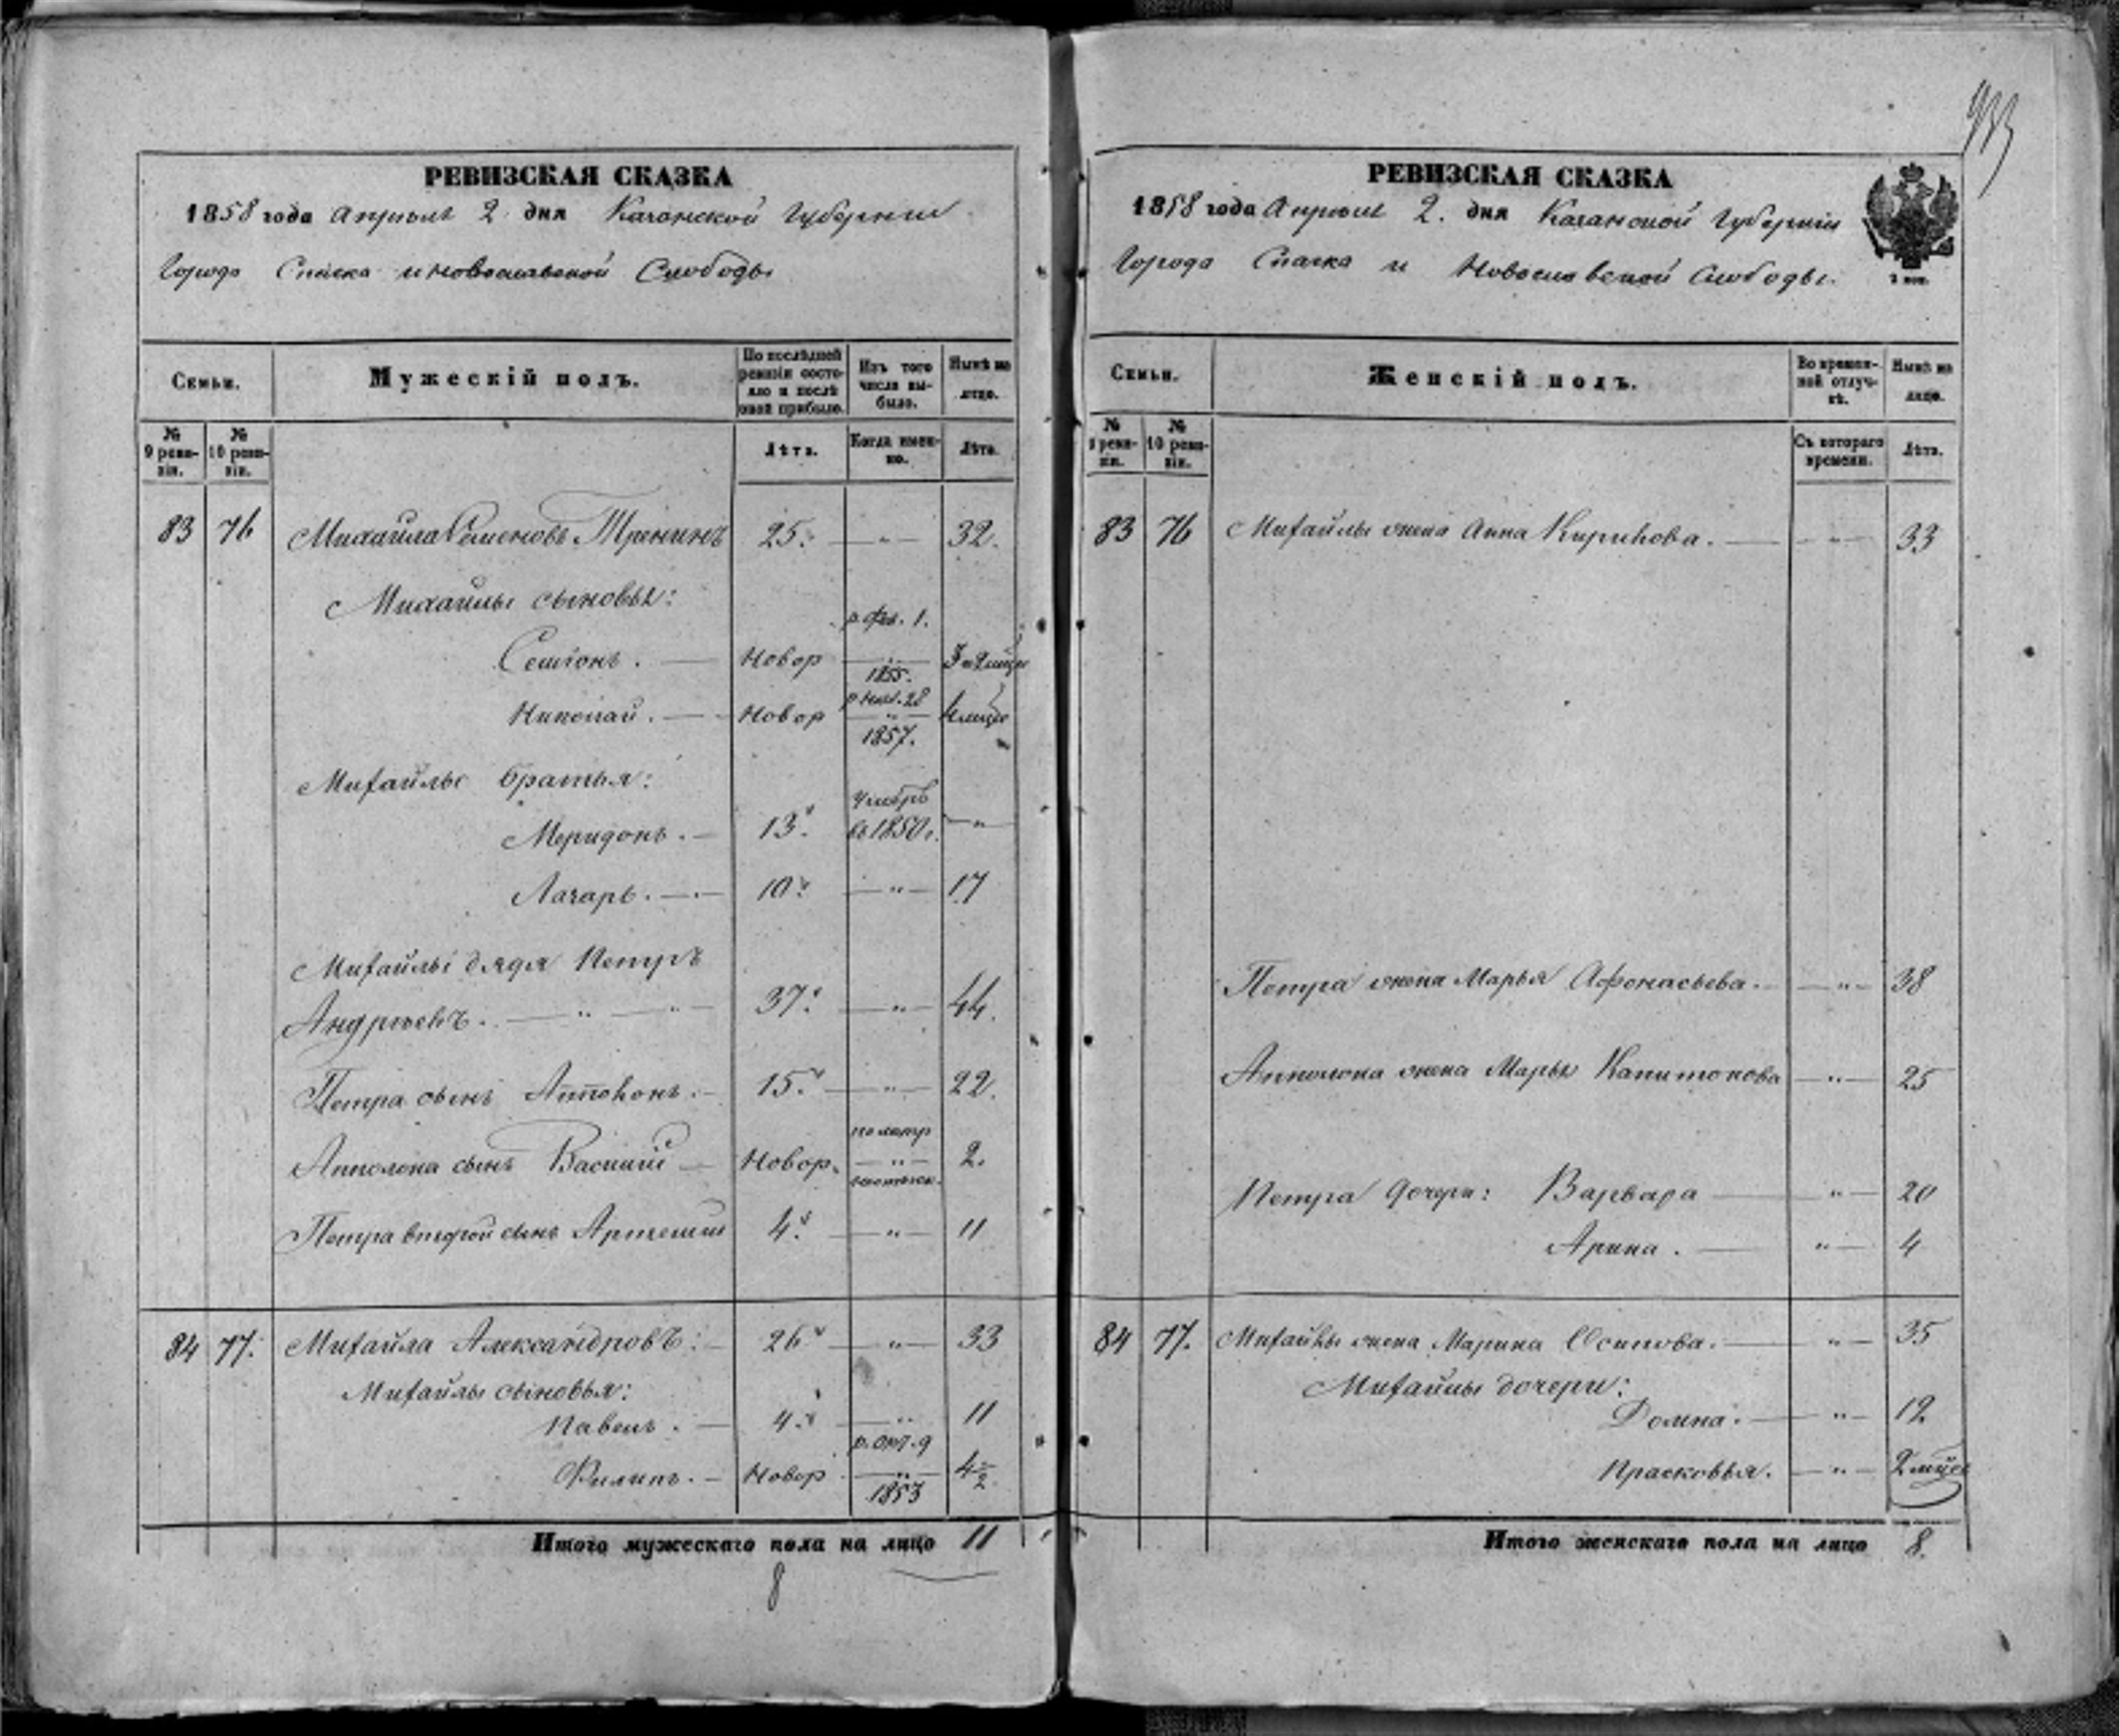 933
РЕВИЗСКАЯ СКАЗКА
1858 года Апрѣля 2 дня Казанской Губерніи
Города Спаска и Новославской Слободы
Семьи.
Мужескій полъ.
По послѣдней ревизіи состояло и послѣ оной прибыло.
Изъ того числа выбыло.
Нынѣ на лицо.
№ 9 ревизіи.
№ 10 ревизіи.
Лѣта.
Когда именно.
Лѣта.
83 76 Михайла Семеновъ Тренинъ 25. — " — 32.
Михайлы сыновья:
р. фев. 1.
Семіонъ. — Новор — " — 3 и 2 мѣся
1855.
р. ноя. 28
Николай. — Новор — " — 4 мѣся
1857.
Михайлы братья:
умбръ
Меридонъ. — 13. въ 1850 г. — "
Лазарь. — 10. — " — 17
Михайлы дядя Петръ
Андреевъ. — " — " 37. — " — 44.
Петра сынъ Апполонъ. — 15. — " — 22.
Апполона сынъ Василій — Новор. — " — 2.
Петра второй сынъ Артемій 4. — " — 11
84 77. Михайла Александровъ: — 26 — " — 33
Михайлы сыновья:
Павелъ. — 4. — " — 11
р. окт. 9
Филипъ. — Новор — " — 4 ½
1853
Итого мужескаго пола на лицо 11
8
РЕВИЗСКАЯ СКАЗКА
1858 года Апрѣля 2. дня Казанской Губерніи
Города Спаска и Новославской Слободы.
2 коп.
Семьи.
Женскій полъ.
Во временной отлучкѣ.
Нынѣ на лицо.
№ 9 ревизіи.
№ 10 ревизіи.
Съ котораго времени.
Лѣта.
83 76 Михайлы жена Анна Кирилова. — " — 33
Петра жена Марья Афонасьева. — " — 38
Апполона жена Марья Капитонова — " — 25
Петра дочери: Варвара — " — 20
Арина. — " — 4
84 77. Михайлы жена Марина Осипова. — " — 35
Михайлы дочери:
Домна. — " — 12.
Прасковья. — " — 2 мѣся
Итого женскаго пола на лицо 8.